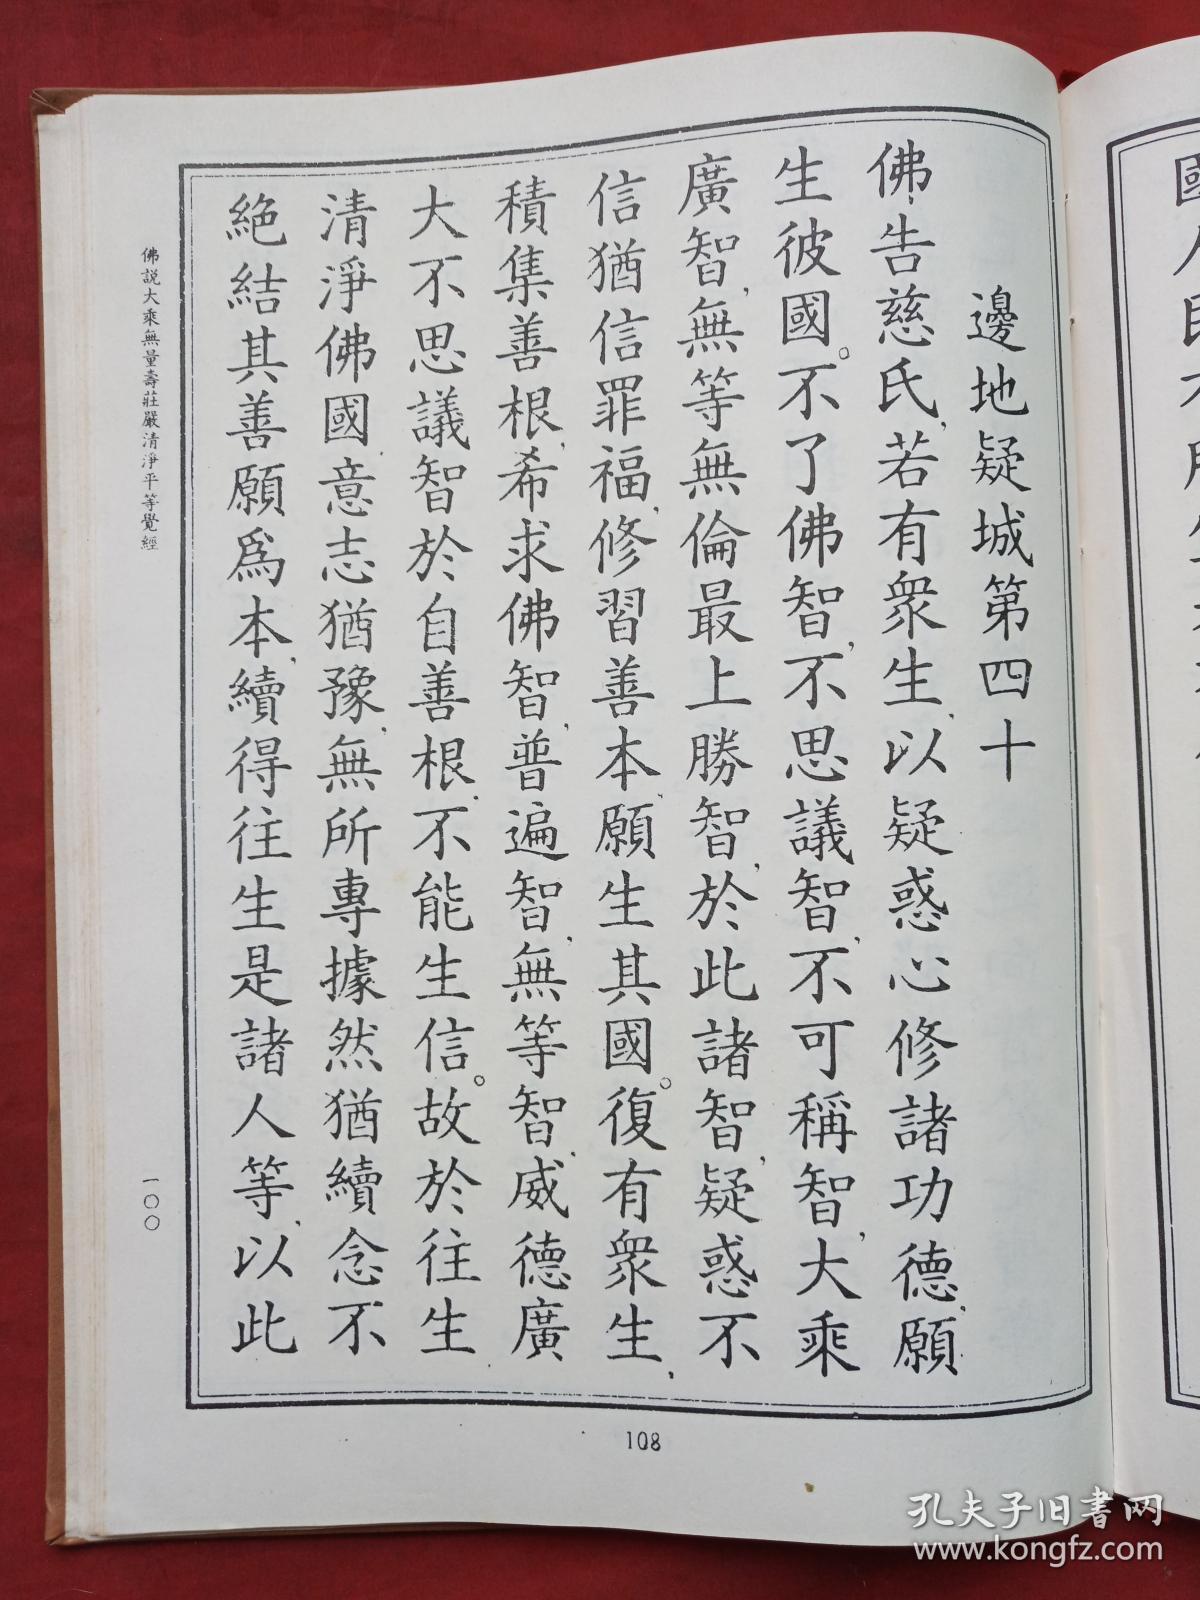 邊地疑城第四十
佛告慈氏、若有衆生、以疑惑心修諸功德、願
生彼國。不了佛智、不思議智、不可稱智、大乘
廣智、無等無倫最上勝智、於此諸智、疑惑不
信猶信罪福、修習善本、願生其國。復有衆生、
積集善根、希求佛智、普遍智、無等智、威德廣
大不思議智於自善根、不能生信。故於往生
清淨佛國、意志猶豫、無所專據、然猶續念不
絶結其善願爲本、續得往生是諸人等、以此
佛說大乘無量壽莊嚴清淨平等覺經
一〇〇
108
孔夫子旧书网
www.kongfz.com